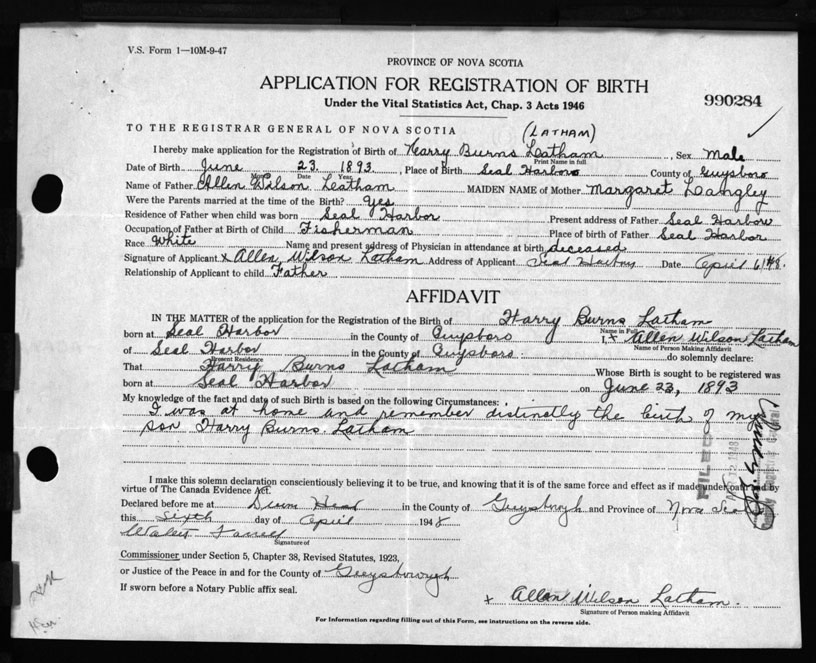 V.S. Form 1—10M-9-47
PROVINCE OF NOVA SCOTIA
APPLICATION FOR REGISTRATION OF BIRTH
990284
Under the Vital Statistics Act, Chap. 3 Acts 1946
TO THE REGISTRAR GENERAL OF NOVA SCOTIA (LATHAM)
I hereby make application for the Registration of Birth of Harry Burns Latham, Sex Male
Print Name in full
Date of Birth June 23 1893, Place of Birth Seal Harbor County of Guysboro
Month Date Year
Name of Father Allen Wilson Latham MAIDEN NAME of Mother Margaret Langley
Were the Parents married at the time of the Birth? Yes
Residence of Father when child was born Seal Harbor Present address of Father Seal Harbor
Occupation of Father at Birth of Child Fisherman Place of birth of Father Seal Harbor
Race White Name and present address of Physician in attendance at birth deceased
Signature of Applicant x Allen Wilson Latham Address of Applicant Seal Harbor Date April 6/48.
Relationship of Applicant to child Father
AFFIDAVIT
IN THE MATTER of the application for the Registration of the Birth of Harry Burns Latham
Name in Full
born at Seal Harbor in the County of Guysboro I, x Allen Wilson Latham
Name of Person Making Affidavit
of Seal Harbor in the County of Guysboro do solemnly declare:
Present Residence
That Harry Burns Latham Whose Birth is sought to be registered was
born at Seal Harbor on June 23, 1893
My knowledge of the fact and date of such Birth is based on the following Circumstances:
I was at home and remember distinctly the birth of my
son Harry Burns Latham
I make this solemn declaration conscientiously believing it to be true, and knowing that it is of the same force and effect as if made under oath and by
virtue of The Canada Evidence Act.
Declared before me at in the County of Guysborough and Province of Nova
this Sixth day of April 1948
Signature of
Commissioner under Section 5, Chapter 38, Revised Statutes, 1923,
or Justice of the Peace in and for the County of Guysborough
If sworn before a Notary Public affix seal.
x Allen Wilson Latham.
Signature of Person making Affidavit
For Information regarding filling out of this Form, see instructions on the reverse side.
FILED